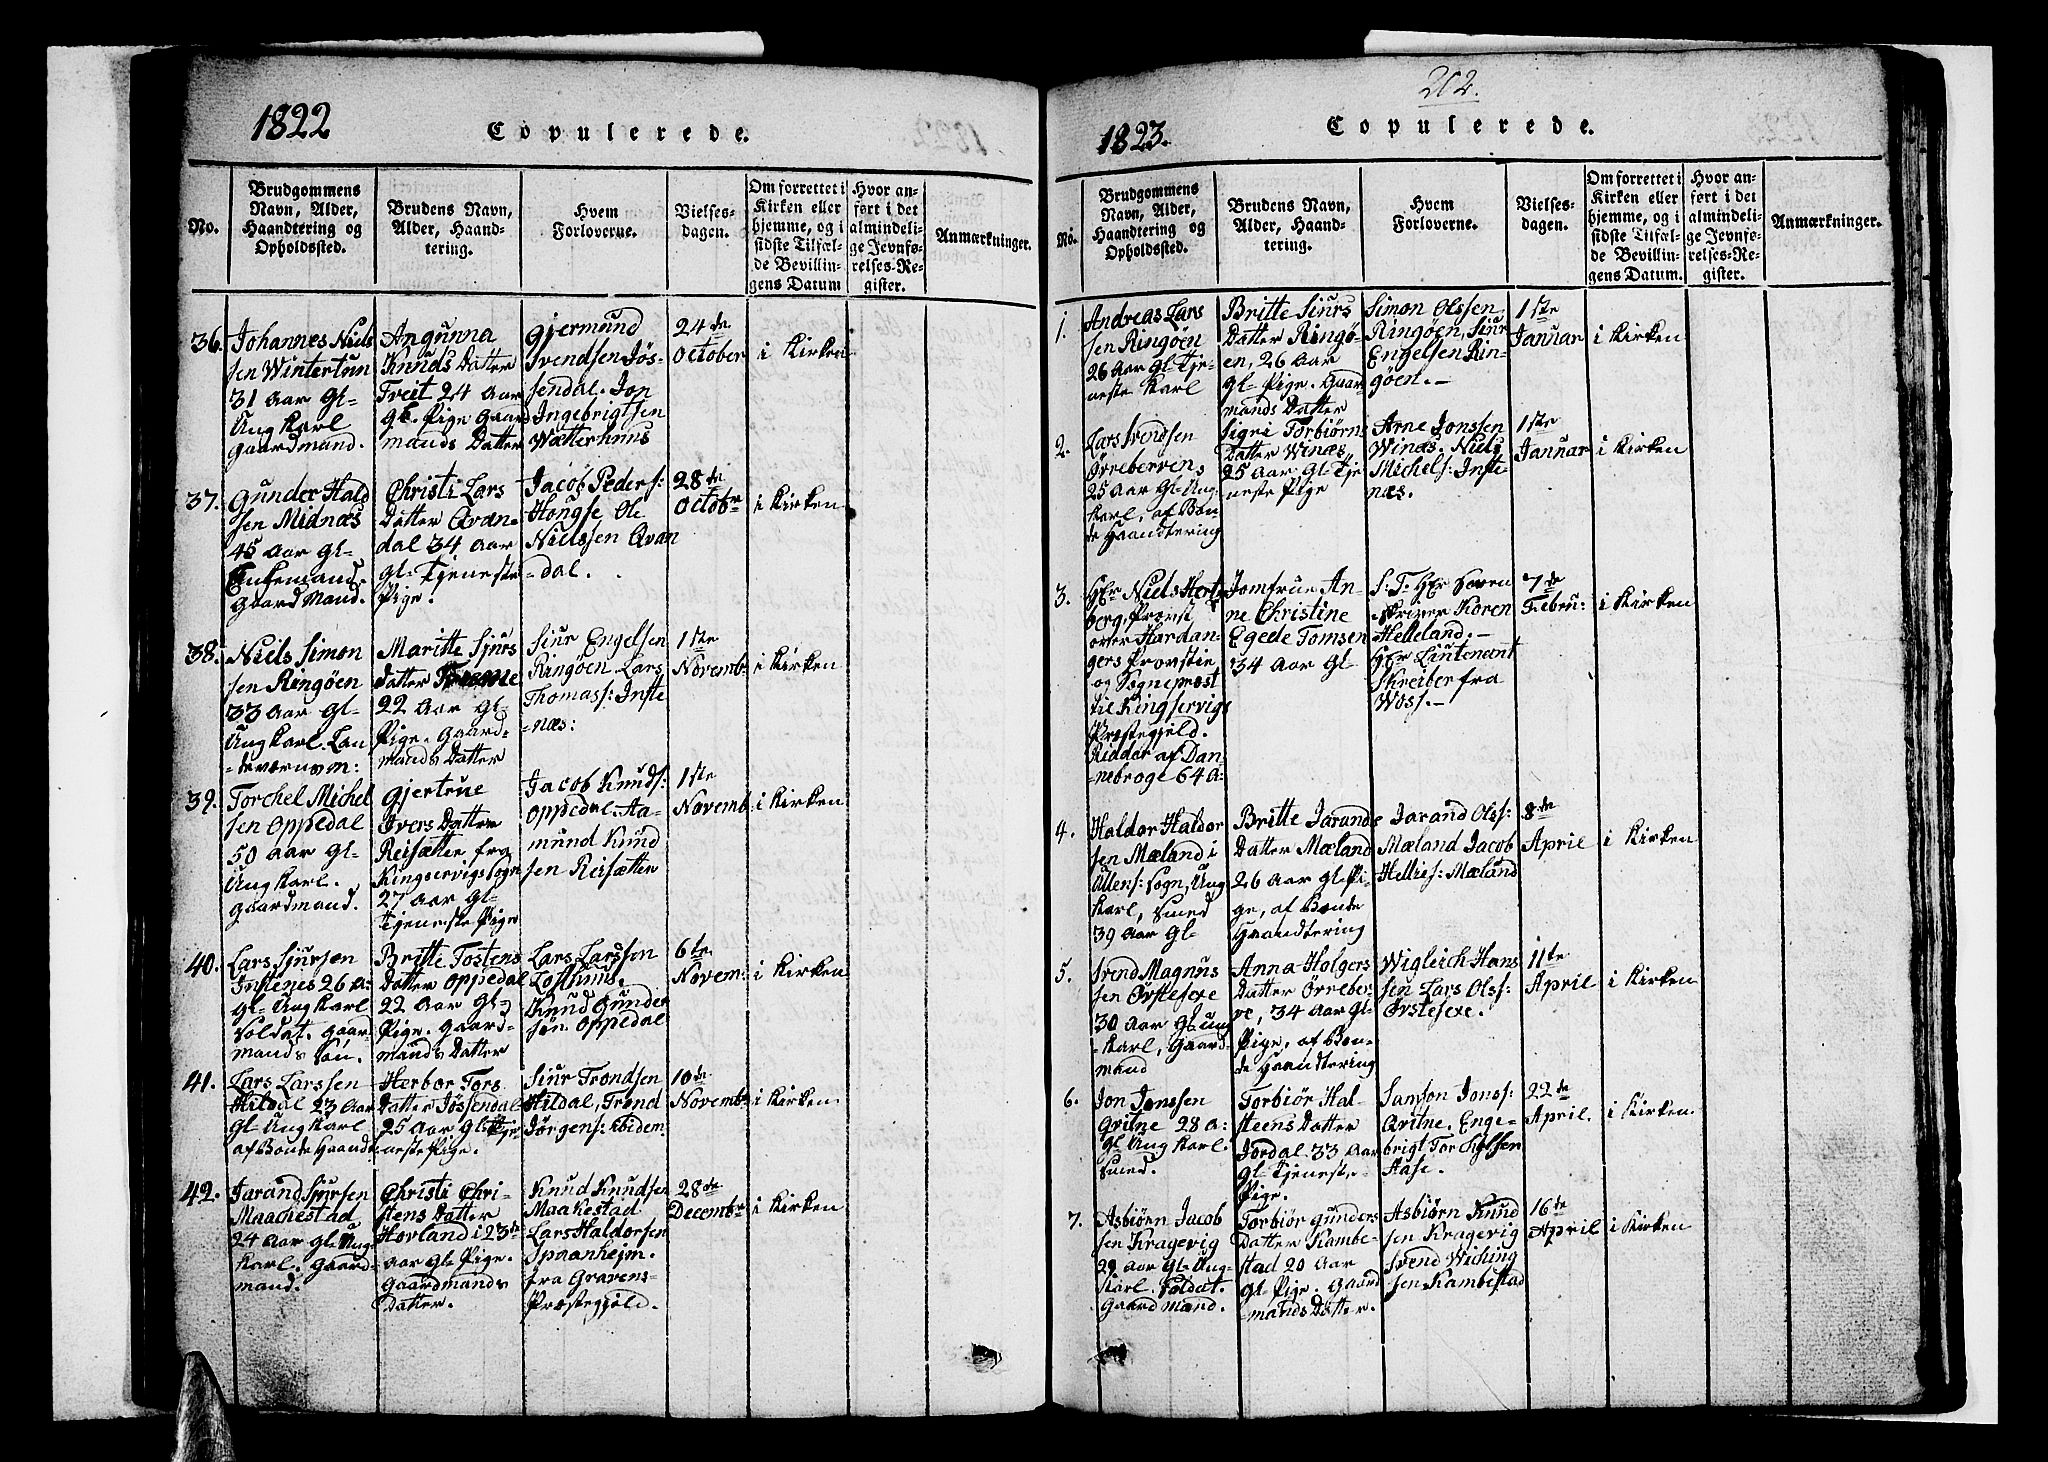 1822
Copulerede.
No.
Brudgommens
Navn, Alder,
Haandtering og
Opholdssted.
Brudens Navn,
Alder, Haand-
tering.
Hvem
Forloverne.
Vielses-
dagen.
Om forrettet i
Kirken eller
hjemme, og i
sidste Tilfæl-
de Bevillin-
gens Datum
Hvor an-
ført i det
almindeli-
ge Jevnfø-
relses-Re-
gister.
Anmærkninger.
36.
Johannes Niels
sen Wintertun
31 Aar Gl-
Ung Karl
gaardmand.
Angunna
Knuds Datter
Freit 24 Aar
gl. Pige Gaard
mands Datter
Gjermund
Svendsen Jøs-
sendal. Jon
Ingebrigtsen
Wætterhuus
24de
October
i Kirken
37.
Gunder Hald
sen Midnæs
45 Aar Gl-
Enkemand.
Gaard Mand.
Christi Lars
Datter Qvan-
dal 34 Aar
gl- Tjeneste
Pige.
Jacob Peders:
Hougse Ole
Nielssen Qvan
-dal.
28de
Octobr
i Kirken
38.
Niels Simon
sen Ringøen
33 Aar Gl-
Ung Karl. Lan
-deværnsm:
Maritte Sjurs
Datter
22 Aar Gl-
Pige. Gaard-
mands Datter
Siur Engelsen
Ringøen Lars
Thomass: Inste
-næs:
1ste
Novemb:
i Kirken
39.
Torchel Michel
sen Oppedal
50 Aar Gl-
Ung Karl.
gaardmand.
Gjertrue
Ivers Datter
Reisætter fra
Kingservigs Sogn
27 Aar Gl-
Tjeneste Pige
Jacob Knuds:
Oppedal Aa-
mund Knud
sen Reisætter
1ste
Novemb:
i Kirken
40.
Lars Sjursen
Instenes 26 A:
Gl- Ung Karl
Soldat. Gaar
mands Søn.
Britte Tostens
Datter Oppedal
22 Aar Gl-
Pige. Gaard-
mands Datter
Lars Larssen
Lofthuus.
Knud Gunder
søn. Oppedal
6te
Novem:
i Kirken
41.
Lars Larssen
Hildal 23 Aar
Gl- Ung Karl
af Bonde Haandt
Herbor Tors
Datter Jøssendal
25 Aar Gl- Tje
neste Pige.
Siur Trondsen
Hildal, Trond
Jørgens: Ibidem
10de
Novembr
i Kirken
42.
Jarand Sjursen
Maachestad
24 Aar Gl- Ung
Karl. Gaard-
mand.
Christi Chri-
stens Datter
Hovland i 23de
Aar Gl- Pige.
Gaardmands
Datter.
Knud Knudsen
Maakestad
Lars Haldorsen
Spaanheim.
fra Gravens-
Præstegjeld.
28de
Decembr
i Kirken
202.
1823.
Copulerede.
No.
Brudgommens
Navn, Alder,
Haandtering og
Opholdssted.
Brudens Navn,
Alder, Haand-
tering.
Hvem
Forloverne.
Vielses-
dagen.
Om forrettet i
Kirken eller
hjemme, og i
sidste Tilfæl-
de Bevillin-
gens Datum.
Hvor an-
ført i det
almindeli-
ge Jevnfø-
relses-Re-
gister.
Anmærkninger.
1.
Andreas Lars
sen Ringøen
26 Aar Gl- Tje-
neste Karl
Britte Siurs
Datter Ringø-
en, 26 Aar
Gl- Pige. Gaar
mands Datter
Simon Olssen
Ringøen, Siur
Engelsen Rin-
gøen.-
1ste
Januar
i Kirken
2.
Lars Svendsen
25 Aar Gl- Ung
Karl, af Bon
de Haandtering
Sigri Torbiørns
Datter Winæs,
25 Aar Gl- Tje
neste Pige
Arne Jonssen
Winæs. Niels
Michels: Inste
næs.
1ste
Januar
i Kirken
3.
Hr Niels Hertz
berg, Provst
over Hardan-
gers Provstie
og Sognepræst
til Kingservigs
Præstegjeld.
Ridder af Dan
-nebroge 64 A:
Jomfrue An-
ne Christine
Egede Tomsen
34 Aar Gl-
S: T: Hr Soren
-skriver Koren
Helleland.-
Hr Lieutenant
Skreiber fra
Woss.-
7de
Febru:
i Kirken
4.
Haldor Haldor
sen Mæland i
Ullens: Sogn, Ung
Karl, Smed
39 Aar Gl-
Britte Jarands
Datter Mæland
26 Aar Gl- Pi-
ge, af Bonde
Haandtering
Jarand Olss:
Mæland Jacob
Hellies: Mæland
8de
April
i Kirken
5.
Svend Magnus
sen Ørstesexe
30 Aar Gl- Ung
-Karl, Gaard-
mand
Anna Holgers
Datter Ørreber
ve, 34 Aar Gl-
Pige, af Bon-
de Haandtering
Wiglich Hans
sen Lars Olss:
Ørstesexe.
11te
April
i Kirken
6.
Jon Jonssen
Qvitne 28 A:
Gl- Ung Karl.
Smed.
Torbiør Hal-
steens Datter
Jordal 33 Aar
Gl- Tjeneste-
Pige.
Samson Jonss:
Qvitne. Enge-
brigt Torchelsen
Aase.
22de
April.
i Kirken.
7.
Asbiørn Jacob
sen Kragevig
29 Aar Gl- Ung-
Karl. Soldat.
Gaard mand.
Torbiør Gunders
Datter Kambe-
stad 20 Aar
Gl- Pige. Gaard
-mands Datter.
Asbiørn Knud
sen Kragevig
Svend Wiching
sen Kambestad
16de
April
i Kirken